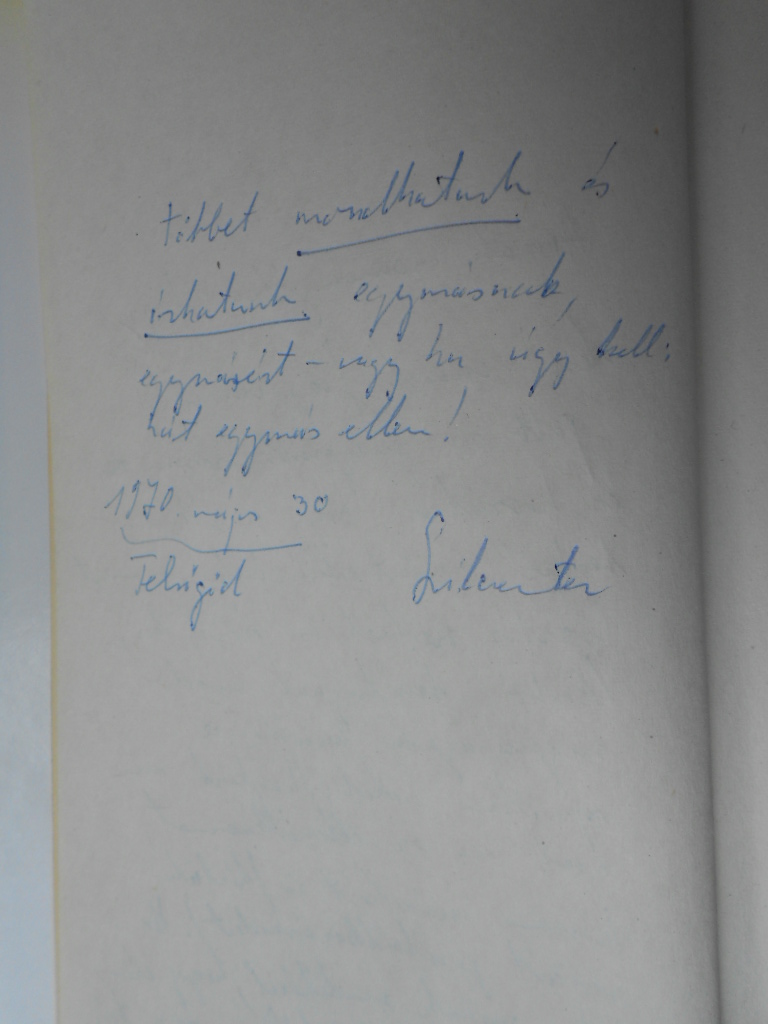 többet mondhatunk és
írhatunk egymásnak,
egymásért – vagy ha úgy kell:
hát egymás ellen!
1970. május 30
Felsőgöd
Szilveszter